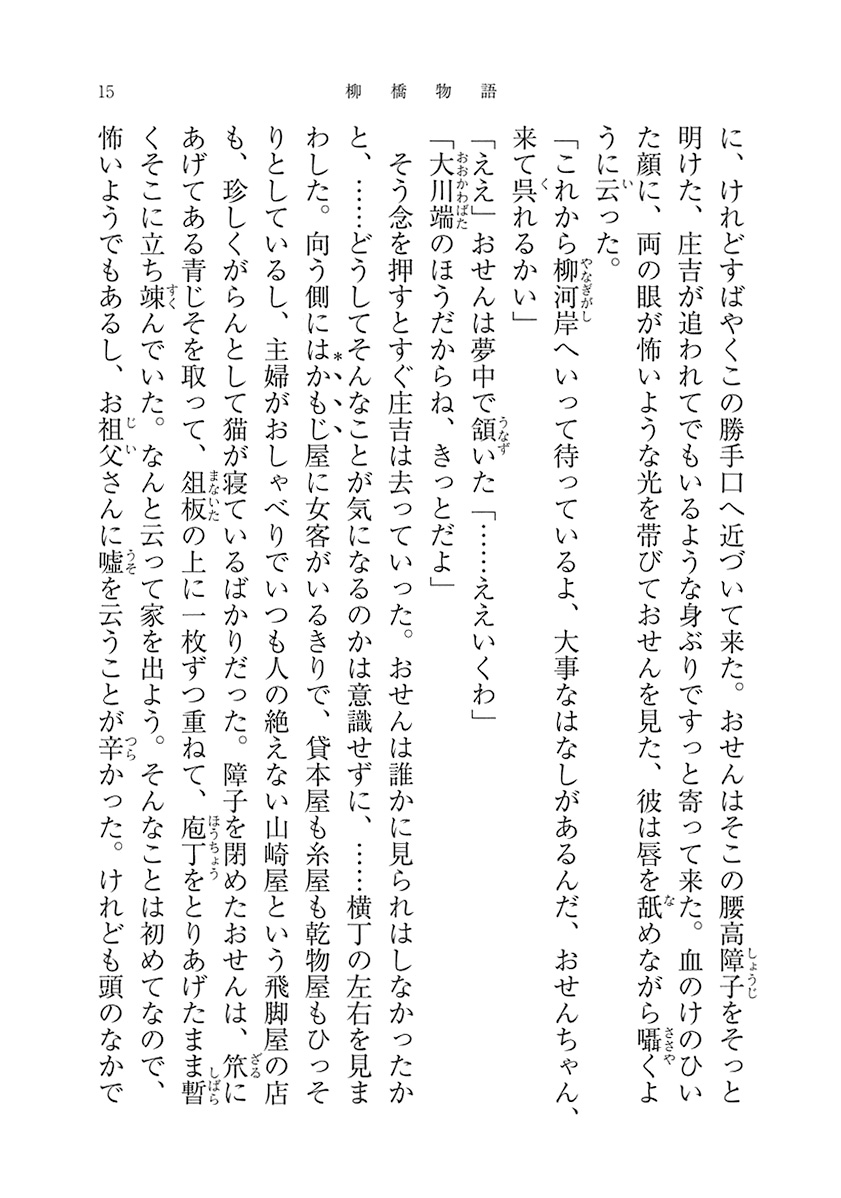 15
柳橋物語
に、けれどすばやくこの勝手口へ近づいて来た。おせんはそこの腰高障子をそっと
明けた、庄吉が追われてでもいるような身ぶりですっと寄って来た。血のけのひい
た顔に、両の眼が怖いような光を帯びておせんを見た、彼は唇を舐めながら囁くよ
うに云った。
「これから柳河岸へいって待っているよ、大事なはなしがあるんだ、おせんちゃん、
来て呉れるかい」
「ええ」おせんは夢中で頷いた「……ええいくわ」
「大川端のほうだからね、きっとだよ」
そう念を押すとすぐ庄吉は去っていった。おせんは誰かに見られはしなかったか
と、……どうしてそんなことが気になるのかは意識せずに、……横丁の左右を見ま
わした。向う側にはかもじ屋に女客がいるきりで、貸本屋も糸屋も乾物屋もひっそ
りとしているし、主婦がおしゃべりでいつも人の絶えない山崎屋という飛脚屋の店
も、珍しくがらんとして猫が寝ているばかりだった。障子を閉めたおせんは、笊に
あげてある青じそを取って、俎板の上に一枚ずつ重ねて、庖丁をとりあげたまま暫
くそこに立ち竦んでいた。なんと云って家を出よう。そんなことは初めてなので、
怖いようでもあるし、お祖父さんに嘘を云うことが辛かった。けれども頭のなかで